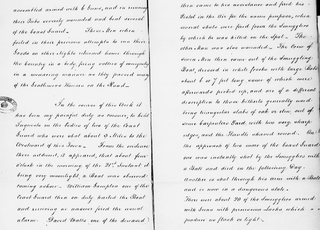 assembled armed with 6 Guns, and in running
their Tubs severely wounded and beat several
of the Coast Guard. These Men when
foiled in their previous attempts to run their
Goods on other nights returned home through
the Country in a body, firing vollies of musquetry
in a menacing manner as they passed many
of the Gentlemens Houses on the Road.
In the course of this Week it
has been my painful duty as Coroner, to hold
Inquests on the Bodies of two of the Coast
Guard who were shot about 2 Miles to the
Westward of this Town. From the evidence
there adduced, it appeared, that about four
o'Clock in the morning of the 31st instant it
being very moonlight, a Boat was observed
coming ashore. William Simpson one of the
Coast Guard then on duty hailed the Boat
and receiving no answer fired the usual
alarm. David Watts one of the deceased
then came to his assistance and fired his
Pistol in the Air for the same purpose, when
several shots were fired from the Smugglers
by which he was killed on the spot. The
other Man was also wounded. The term of
seven Men then came out of the Smuggling
Boat, dressed in white Frocks with large Bats
about 6 or 7 feet long some of which were
afterwards picked up, and are of a different
description to those hitherto generally used
being triangular clubs of ash or elm, cut
some Carpenters Yard, with two very sharp
edges, and the Handle shaved round. On
the approach of two more of the Coast Guard
one was instantly shot by the Smugglers with
a Ball and died on the following day.
Another is shot through his arm with a Ball
and is now in a dangerous state.
There were about 20 of the Smugglers armed
with Guns with percussion Locks which
produce no flash or light.